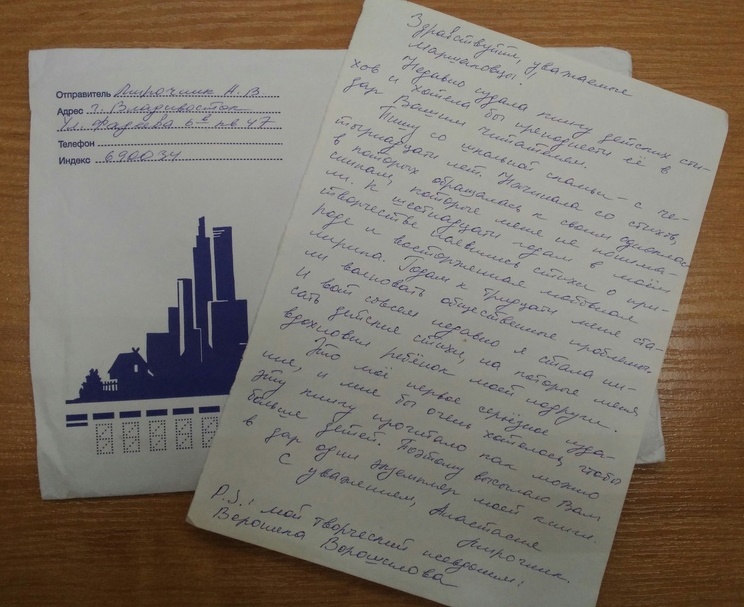 Отправитель Мирочник А. В
Адрес г. Владивосток
ул. Фадеева 6в кв 47
Телефон
Индекс 690034
Здравствуйте, уважаемые
Маршаковцы!
Недавно издала книгу детских сти-
хов и хотела бы преподнести её в
дар Вашим читателям.
Пишу со школьной скамьи – с че-
тырнадцати лет. Начинала со стихов,
в которых обращалась к своим одноклас-
сникам, которые меня не понима-
ли. К шестнадцати годам в моём
творчестве появились стихи о при-
роде и восторженная любовная
лирика. Годам к тридцати меня ста-
ли волновать общественные проблемы.
И вот совсем недавно я стала пи-
сать детские стихи, на которые меня
вдохновил ребёнок моей подруги.
Это моё первое серьёзное изда-
ние, и мне бы очень хотелось, чтобы
эту книгу прочитало как можно
больше детей. Поэтому высылаю Вам
в дар один экземпляр моей книги.
С уважением, Анастасия
Мирочник.
P.S.: мой творческий псевдоним:
Вероника Ворошилова